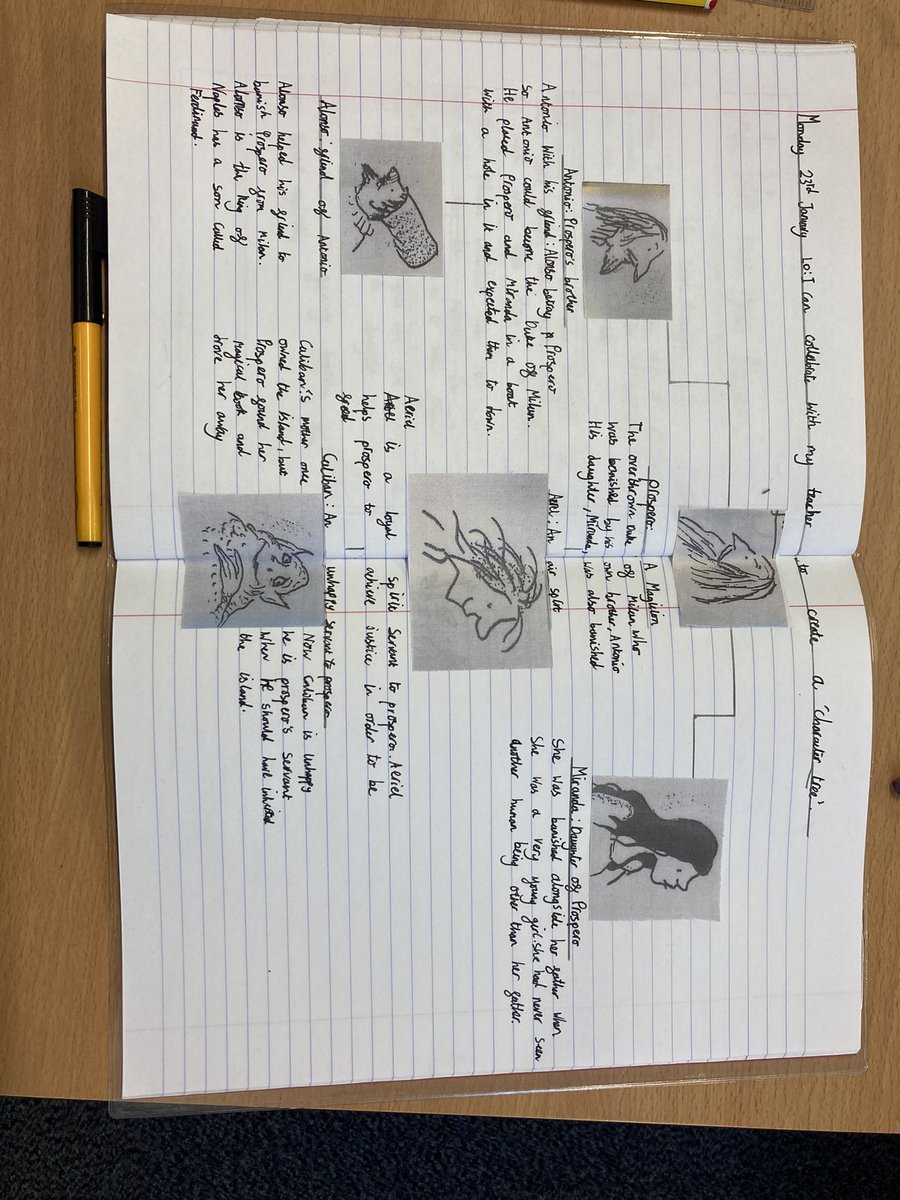 Monday 23rd January Lo: I can collobrate with my teacher to create a 'character tree'.
Prospero: A Magician
The overthrown Duke of Milan who
was banished by his own brother, Antonio
His daughter, Miranda, was also banished
Antonio: Prospero's brother
Antonio with his friend: Alonso betray Prospero
so Antonio could become the Duke of Milan.
He placed Prospero and Miranda in a boat
with a hole in it and expected them to down.
Miranda: Daughter of Prospero
She was banished alongside her father when
she was a very young girl. she had never seen
another human being other than her father.
Aeriel: An air spirit
Aeriel is a loyal spirit servant to prospero. Aeriel
helps prospero to achieve justice in order to be
freed
Alonso: friend of Antonio
Alonso helped his friend to
banish Prospero from Milan.
Alonso is the King of
Naples has a son called
Ferdinand.
Caliban: An unhappy servant to prospero
Caliban's mother once
owned the island, but
Prospero found her
magical book and
drove her away
Now Caliban is unhappy
he is prospero's servant
when he should have inherited
the island.